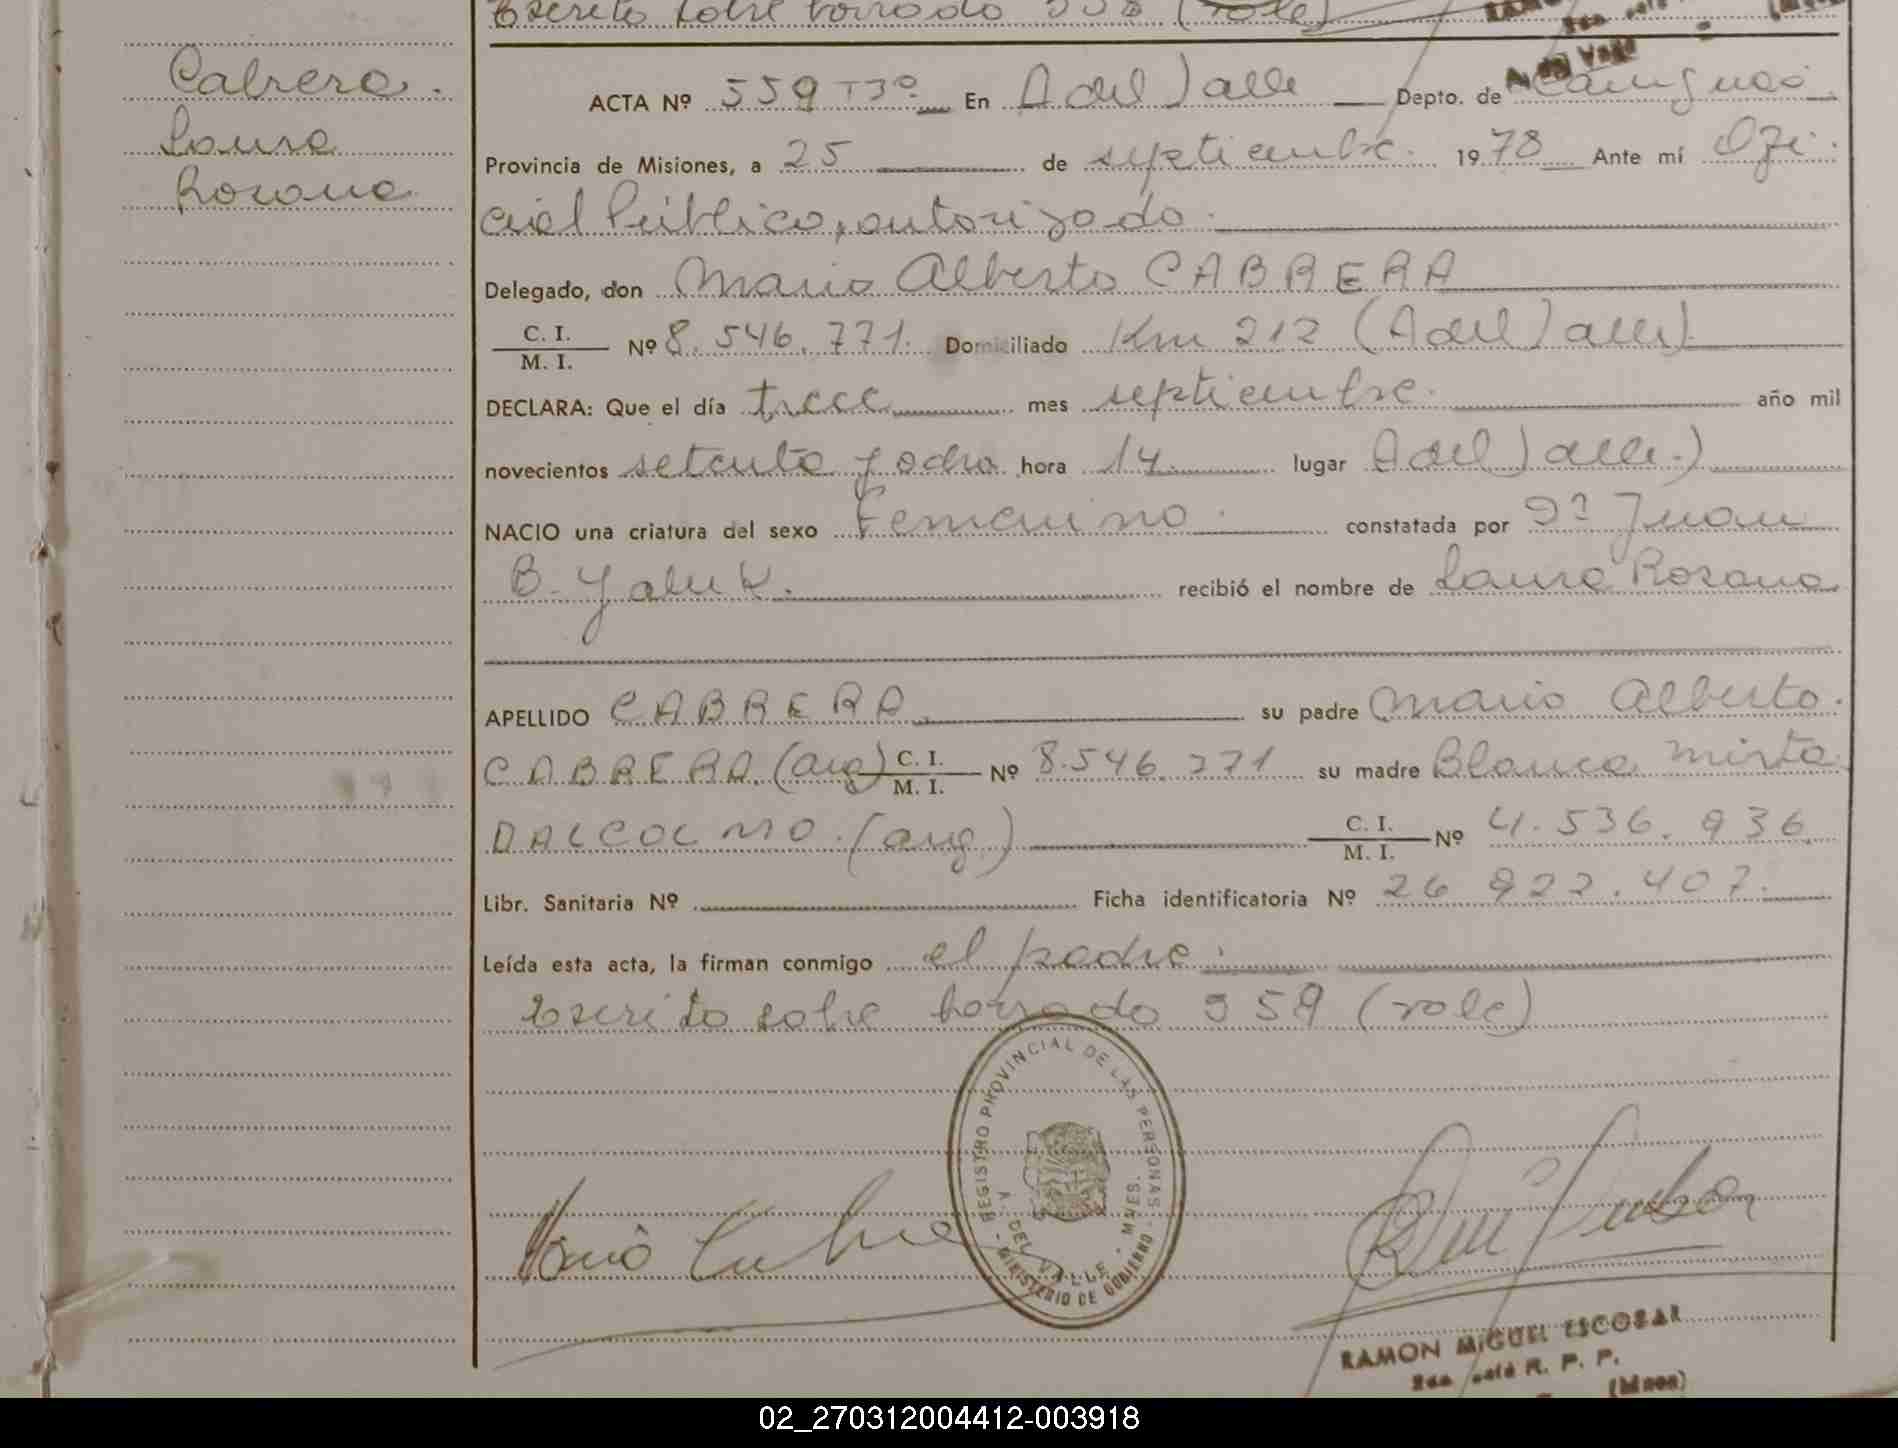 Escrito sobre borrado 558 (vale)
Cabrera.
Laura
Rosana
ACTA Nº 559 Tº3º En A del Valle Depto. de Cainguás
Provincia de Misiones, a 25 de septiembre. 1978 Ante mí Ofi-
cial Público, autorizado.
Delegado, don Mario Alberto CABRERA
C. I.
M. I. Nº 8.546.771. Domiciliado Km 212 (A del Valle).
DECLARA: Que el día trece mes septiembre. año mil
novecientos setenta y ocho hora 14 lugar A del Valle.)
NACIO una criatura del sexo Femenino. constatada por Dº Juan
B. recibió el nombre de Laura Rosana
APELLIDO CABRERA. su padre Mario Alberto.
CABRERA. (arg) C. I.
M. I. Nº 8.546.771 su madre Blanca Mirta
DALCOLMO. (arg.) C. I.
M. I. Nº 4.536.936
Libr. Sanitaria Nº Ficha identificatoria Nº 26 922.407.
Leída esta acta, la firman conmigo el padre.
Escrito sobre borrado 559 (vale)
REGISTRO PROVINCIAL DE LAS PERSONAS
A. DEL VALLE - MNES.
- MINISTERIO DE GOBIERNO -
RAMON MIGUEL ESCOBAR
R. P. P.
(Mnes)
02_270312004412-003918